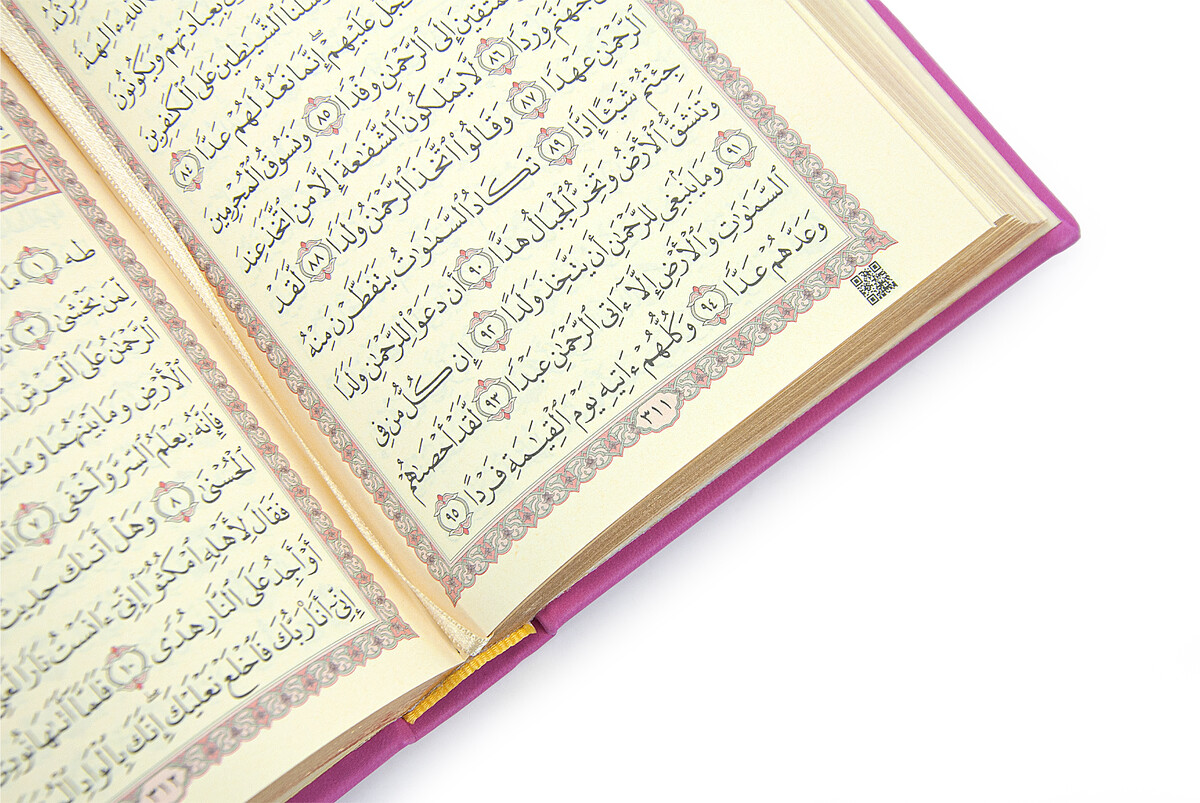 ٱللَّهِ ءَالِهَةً
بِعِبَادَتِهِمْ وَيَكُونُونَ
أَرْسَلْنَا ٱلشَّيَٰطِينَ عَلَى ٱلْكَٰفِرِينَ
تَعْجَلْ عَلَيْهِمْ ۖ إِنَّمَا نَعُدُّ لَهُمْ عَدًّا ٨٤
ٱلْمُتَّقِينَ إِلَى ٱلرَّحْمَٰنِ وَفْدًا ٨٥ وَنَسُوقُ ٱلْمُجْرِمِينَ
جَهَنَّمَ وِرْدًا ٨٦ لَّا يَمْلِكُونَ ٱلشَّفَٰعَةَ إِلَّا مَنِ ٱتَّخَذَ عِندَ
ٱلرَّحْمَٰنِ عَهْدًا ٨٧ وَقَالُوا۟ ٱتَّخَذَ ٱلرَّحْمَٰنُ وَلَدًا ٨٨ لَّقَدْ
جِئْتُمْ شَيْـًٔا إِدًّا ٨٩ تَكَادُ ٱلسَّمَٰوَٰتُ يَتَفَطَّرْنَ مِنْهُ
وَتَنشَقُّ ٱلْأَرْضُ وَتَخِرُّ ٱلْجِبَالُ هَدًّا ٩٠ أَن دَعَوْا۟ لِلرَّحْمَٰنِ وَلَدًا
٩١ وَمَا يَنۢبَغِى لِلرَّحْمَٰنِ أَن يَتَّخِذَ وَلَدًا ٩٢ إِن كُلُّ مَن فِى
ٱلسَّمَٰوَٰتِ وَٱلْأَرْضِ إِلَّآ ءَاتِى ٱلرَّحْمَٰنِ عَبْدًا ٩٣ لَّقَدْ أَحْصَىٰهُمْ
وَعَدَّهُمْ عَدًّا ٩٤ وَكُلُّهُمْ ءَاتِيهِ يَوْمَ ٱلْقِيَٰمَةِ فَرْدًا ٩٥
٣١١
طه ١ مَآ
لِّمَن يَخْشَىٰ ٣
ٱلرَّحْمَٰنُ عَلَى ٱلْعَرْشِ
ٱلْأَرْضِ وَمَا بَيْنَهُمَا وَمَا
فَإِنَّهُۥ يَعْلَمُ ٱلسِّرَّ وَأَخْفَى ٧
ٱلْحُسْنَىٰ ٨ وَهَلْ أَتَىٰكَ حَدِيثُ
فَقَالَ لِأَهْلِهِ ٱمْكُثُوٓا۟ إِنِّىٓ ءَانَسْتُ نَارًا
أَوْ أَجِدُ عَلَى ٱلنَّارِ هُدًى ١٠ فَلَمَّآ أَتَىٰهَا نُودِىَ
إِنِّىٓ أَنَا۠ رَبُّكَ فَٱخْلَعْ نَعْلَيْكَ ۖ إِنَّكَ بِٱلْوَادِ
٣١٢